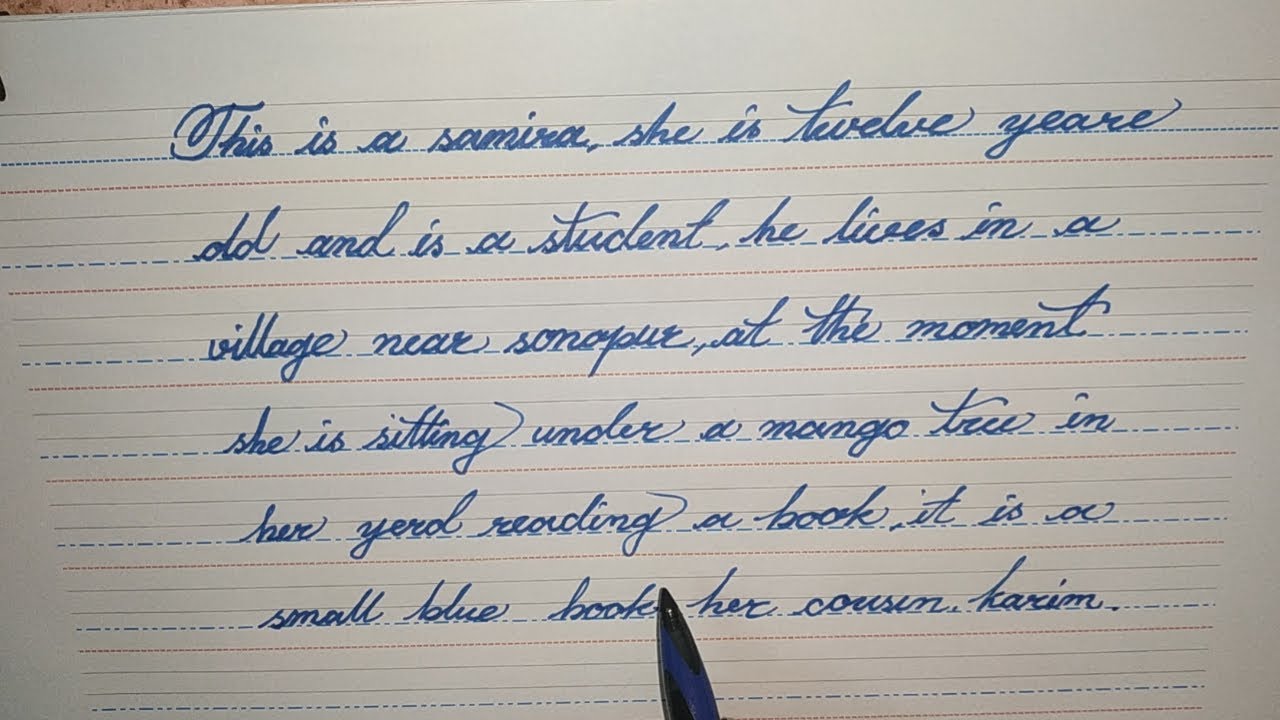 This is a samira, she is twelve yeare
old and is a student, he lives in a
village near sonopur, at the moment
she is sitting under a mango tree in
her yerd reading a book, it is a
small blue book her cousin. karim.